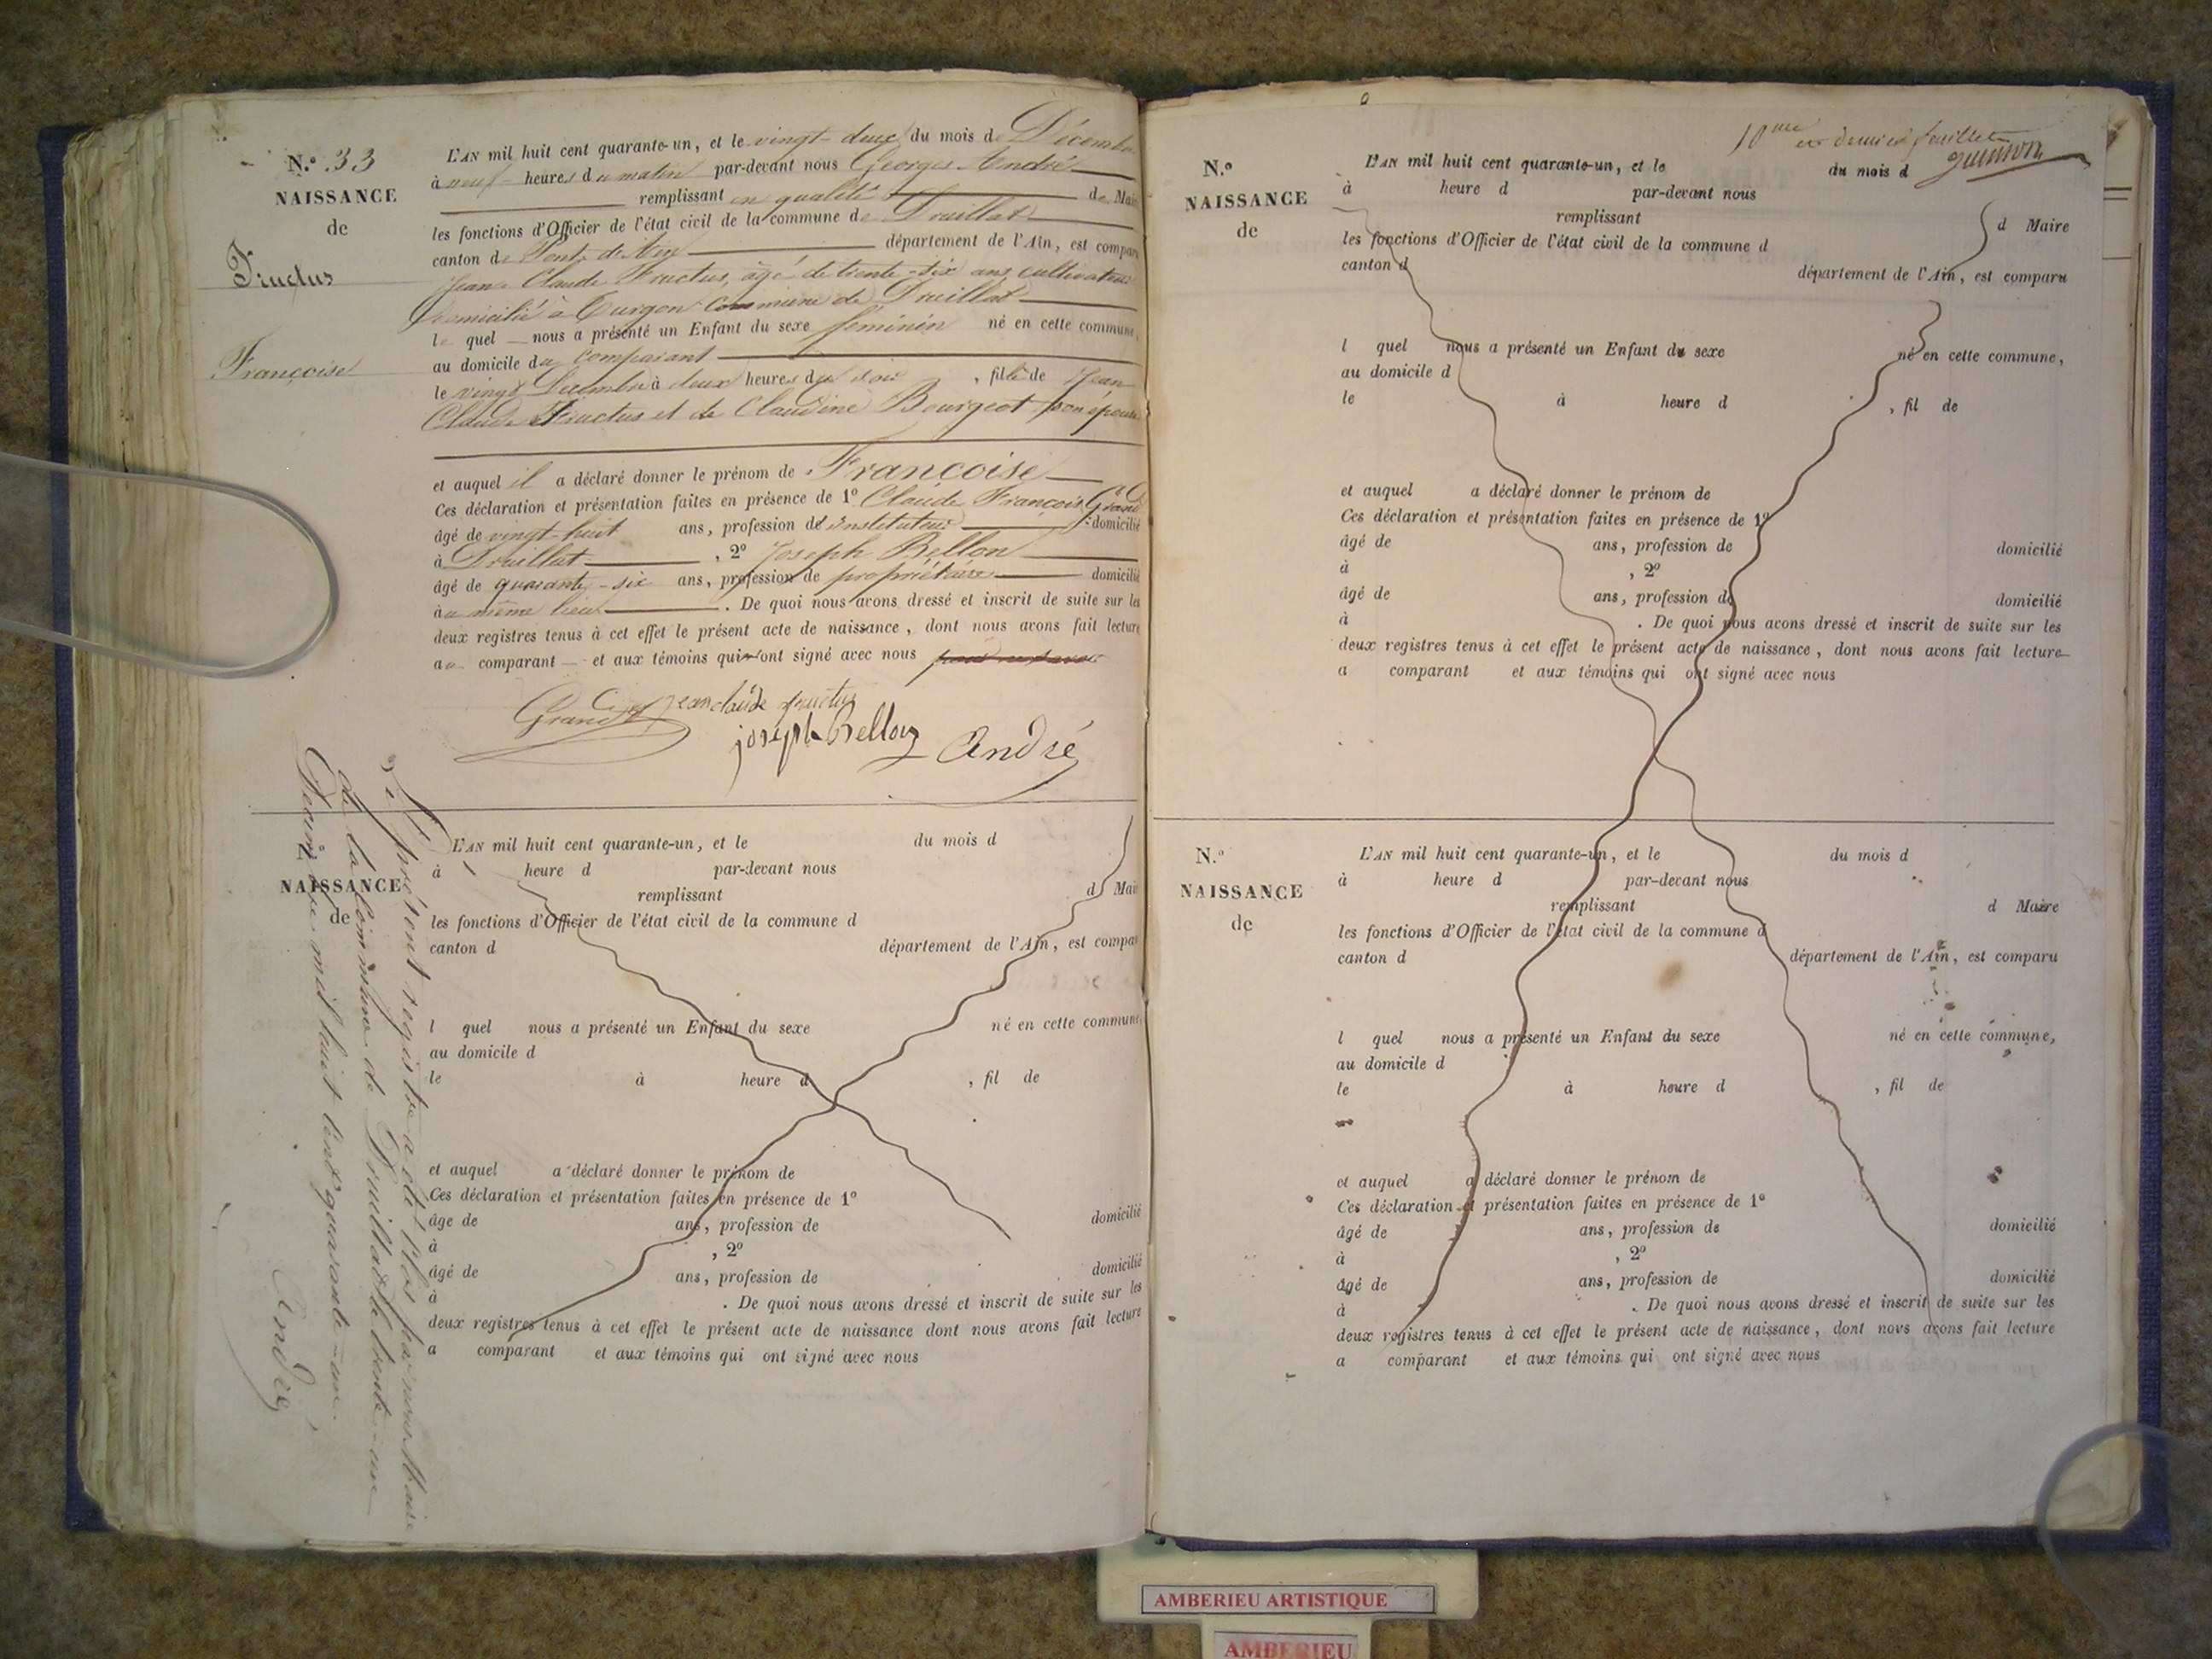 N.o 33
NAISSANCE
de
Fructus
Françoise
L'AN mil huit cent quarante-un, et le vingt-deux du mois de Décembre
à neuf heures du matin par-devant nous Georges André
remplissant en qualité de Mai
les fonctions d'Officier de l'état civil de la commune de Druillat
canton de Pont d'Ain département de l'Ain, est comparu
Jean Claude Fructus, âgé de trente-six ans cultivateur
domicilié à Turgon commune de Druillat
le quel nous a présenté un Enfant du sexe féminin né en cette commune,
au domicile du comparant
le vingt Décembre à deux heures du soir , fille de Jean
Claude Fructus et de Claudine Bourgeot son épouse
et auquel il a déclaré donner le prénom de Françoise
Ces déclaration et présentation faites en présence de 1o Claude François Grand
âgé de vingt-huit ans, profession de instituteur domicilié
à Druillat , 2o Joseph Bellon
âgé de quarante-six ans, profession de propriétaire domicilié
au même lieu . De quoi nous avons dressé et inscrit de suite sur les
deux registres tenus à cet effet le présent acte de naissance, dont nous avons fait lecture
au comparant et aux témoins qui ont signé avec nous
Grand jean claude fructus
joseph Bellon André
NAISSANCE
de
L'AN mil huit cent quarante-un, et le du mois d
à heure d par-devant nous
remplissant d Mai
les fonctions d'Officier de l'état civil de la commune d
canton d département de l'Ain, est compar
l quel nous a présenté un Enfant du sexe né en cette commune
au domicile d
le à heure d , fil de
et auquel a déclaré donner le prénom de
Ces déclaration et présentation faites en présence de 1o
âge de ans, profession de domicilié
à , 2o
âgé de ans, profession de domicilié
à . De quoi nous avons dressé et inscrit de suite sur les
deux registres tenus à cet effet le présent acte de naissance dont nous avons fait lecture
a comparant et aux témoins qui ont signé avec nous
Le présent registre a été clos par nous Maire
de la Commune de Druillat le trente-un
Décembre mil huit cent quarante-un.
André
10me et dernier feuillet
N.o
NAISSANCE
de
L'AN mil huit cent quarante-un, et le du mois d
à heure d par-devant nous
remplissant d Maire
les fonctions d'Officier de l'état civil de la commune d
canton d département de l'Ain, est comparu
l quel nous a présenté un Enfant du sexe né en cette commune,
au domicile d
le à heure d , fil de
et auquel a déclaré donner le prénom de
Ces déclaration et présentation faites en présence de 1o
âgé de ans, profession de domicilié
à , 2o
âgé de ans, profession de domicilié
à . De quoi nous avons dressé et inscrit de suite sur les
deux registres tenus à cet effet le présent acte de naissance, dont nous avons fait lecture
a comparant et aux témoins qui ont signé avec nous
N.o
NAISSANCE
de
L'AN mil huit cent quarante-un, et le du mois d
à heure d par-devant nous
remplissant d Maire
les fonctions d'Officier de l'état civil de la commune d
canton d département de l'Ain, est comparu
l quel nous a présenté un Enfant du sexe né en cette commune,
au domicile d
le à heure d , fil de
et auquel a déclaré donner le prénom de
Ces déclaration et présentation faites en présence de 1o
âgé de ans, profession de domicilié
à , 2o
âgé de ans, profession de domicilié
à . De quoi nous avons dressé et inscrit de suite sur les
deux registres tenus à cet effet le présent acte de naissance, dont nous avons fait lecture
a comparant et aux témoins qui ont signé avec nous
AMBERIEU ARTISTIQUE
AMBERIEU